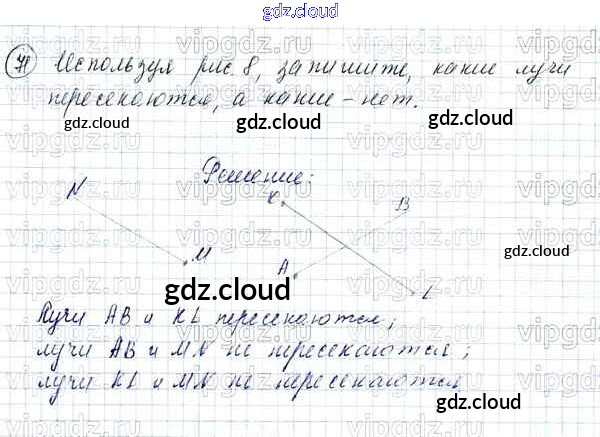 gdz.cloud
71 Используя рис. 8, запишите, какие лучи
пересекаются, а какие - нет.
gdz.cloud
gdz.cloud
Решение:
N K B
gdz.cloud
M A
gdz.cloud
L
Лучи AB и KL пересекаются;
лучи AB и MN не пересекаются;
лучи KL и MN не пересекаются
gdz.cloud
gdz.cloud
vipgdz.ru